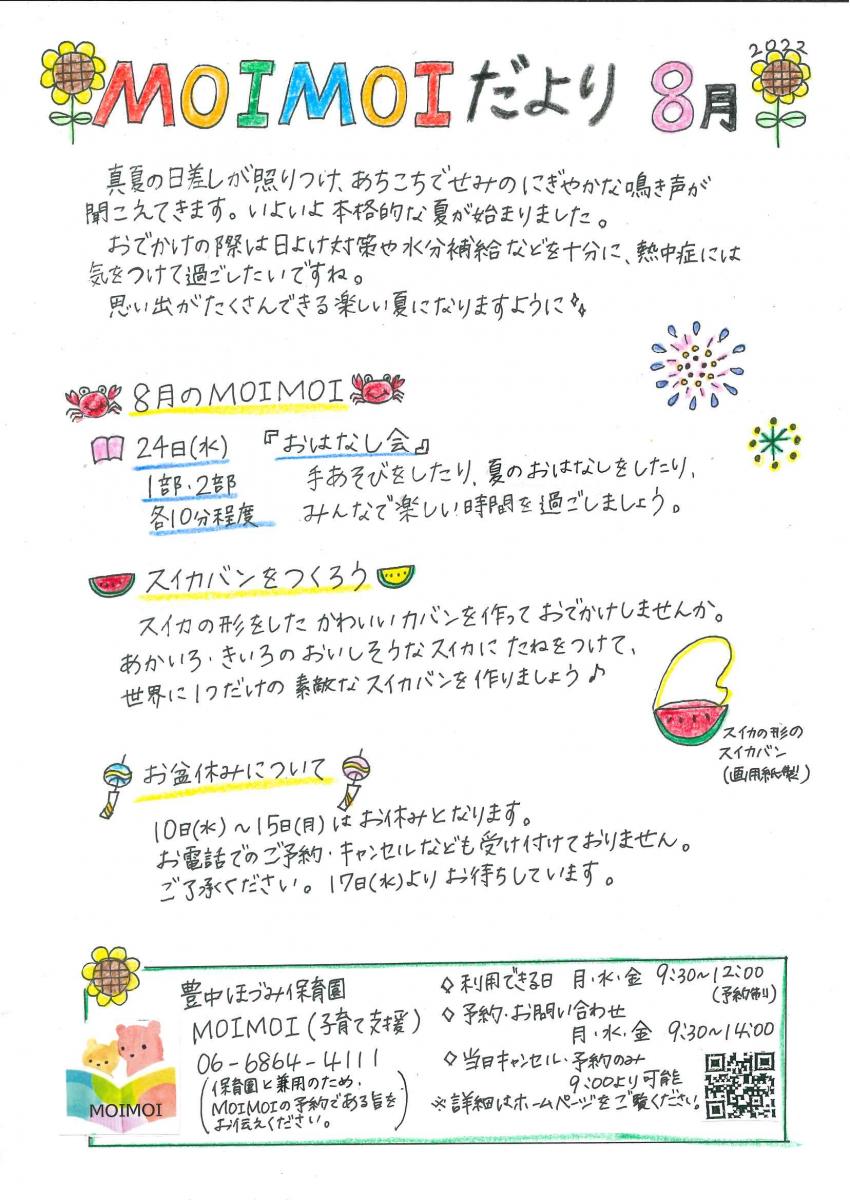 2022
MOIMOIだより 8月
真夏の日差しが照りつけ、あちこちでせみのにぎやかな鳴き声が
聞こえてきます。いよいよ本格的な夏が始まりました。
おでかけの際は日よけ対策や水分補給などを十分に、熱中症には
気をつけて過ごしたいですね。
思い出がたくさんできる楽しい夏になりますように
8月のMOIMOI
24日(水) 『おはなし会』
1部・2部
各10分程度
手あそびをしたり、夏のおはなしをしたり、
みんなで楽しい時間を過ごしましょう。
スイカバンをつくろう
スイカの形をしたかわいいカバンを作っておでかけしませんか。
あかいろ・きいろのおいしそうなスイカにたねをつけて、
世界に1つだけの素敵なスイカバンを作りましょう♪
スイカの形の
スイカバン
(画用紙製)
お盆休みについて
10日(水)~15日(月)はお休みとなります。
お電話でのご予約・キャンセルなども受け付けておりません。
ご了承ください。17日(水)よりお待ちしています。
豊中ほづみ保育園
MOIMOI(子育て支援)
06-6864-4111
(保育園と兼用のため、
MOIMOIの予約である旨を
お伝えください。)
MOIMOI
◇利用できる日 月・水・金 9:30~12:00
(予約制)
◇予約・お問い合わせ
月・水・金 9:30~14:00
◇当日キャンセル・予約のみ
9:00より可能
※詳細はホームページをご覧ください。